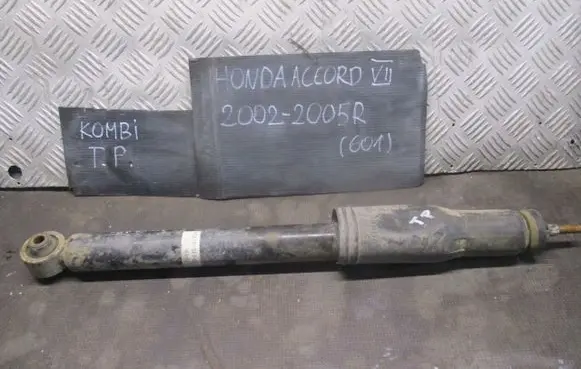 KOMBi
T. P.
HONDA ACCORD VII
2002-2005R
(601)
TP